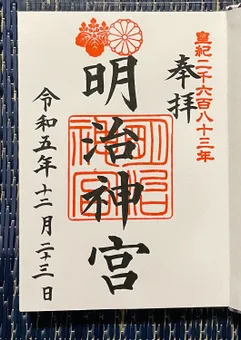 皇紀二千六百八十三年
奉拝
明治神宮
明治神宮
令和五年十二月二十三日